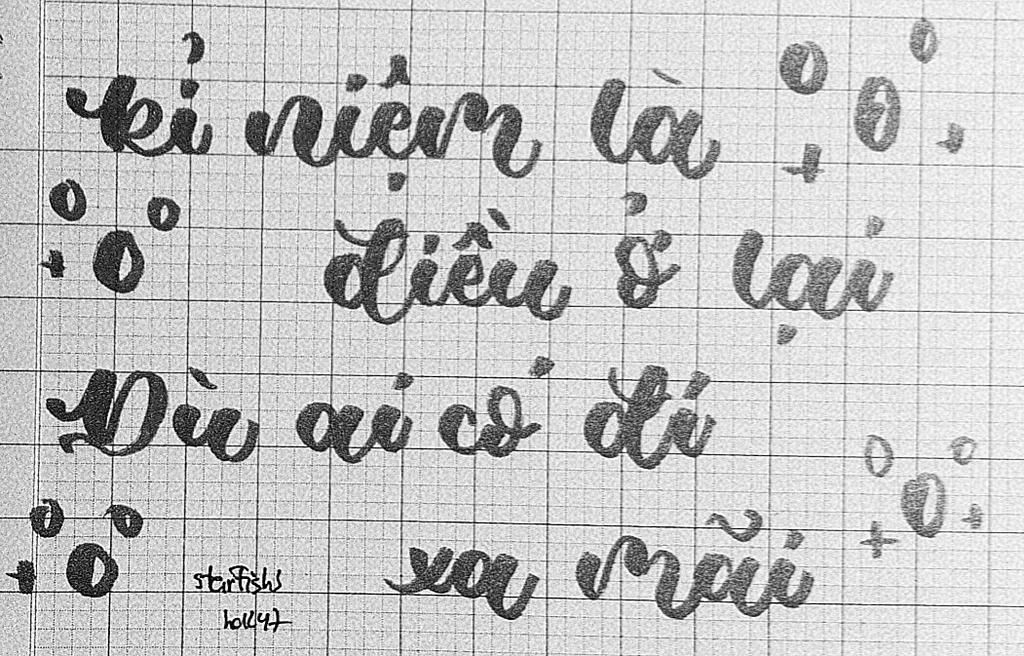 kỉ niệm là
điều ở lại
Dù ai có đi
xa mãi
starfish